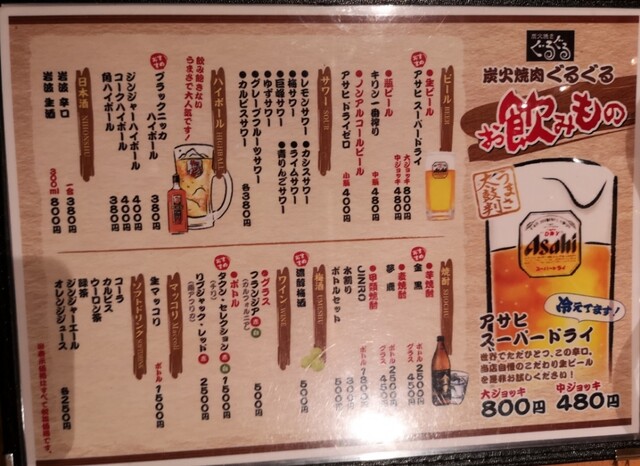 炭火焼肉
ぐるぐる
炭火焼肉 ぐるぐる
お飲みもの
うまさ
太鼓判
Asahi
冷えてます!
アサヒ
スーパードライ
世界でただひとつ、この辛口。
当店自慢のこだわり生ビール
を是非お試しください!
大ジョッキ 800円
中ジョッキ 480円
ビール BEER
●生ビール
アサヒスーパードライ
大ジョッキ 800円
中ジョッキ 480円
●瓶ビール
キリン一番搾り 中瓶 480円
●ノンアルコールビール
アサヒドライゼロ 小瓶 400円
サワー SOUR
●レモンサワー ●カシスサワー
●梅サワー ●ライムサワー
●巨峰サワー ●青りんごサワー
●ゆずサワー
●グレープフルーツサワー
●カルピスサワー 各380円
ハイボール HIGHBALL
飲み飽きない
うまさで大人気です!
ブラックニッカ
ハイボール 380円
ジンジャーハイボール 400円
コークハイボール 400円
角ハイボール 380円
日本酒 NIHONSHU
岩波 辛口 一合 380円
岩波 生酒 300ml 800円
焼酎 SHOCHU
●芋焼酎
金黒 ボトル 2500円
グラス 450円
●麦焼酎
ボトル 2500円
グラス 450円
●甲類焼酎
ボトル 1800円
水割り
ボトルセット 500円
梅酒 UMESHU
濃醇梅酒 500円
ワイン WINE
●グラス
フランジア 赤 白
(カルフォルニア) 500円
●ボトル
サン・セレクション 赤 白
(チリ) 1500円
リブシャック・レッド 赤
(南アフリカ) 2500円
マッコリ
生マッコリ ボトル 1500円
ソフトドリンク
コーラ
カルピス
ウーロン茶
緑茶
ジンジャーエール
オレンジジュース 各250円
※表示価格はすべて税抜価格です。